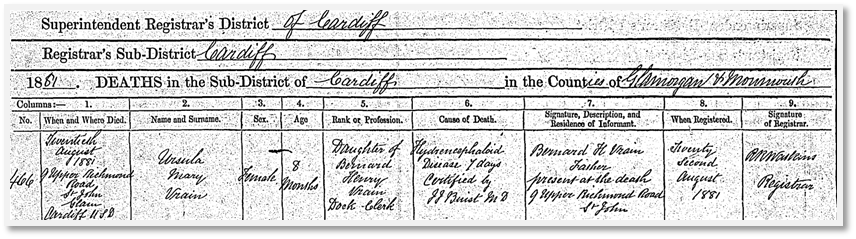 Superintendent Registrar's District of Cardiff
Registrar's Sub-District Cardiff
1881. DEATHS in the Sub-District of Cardiff in the Counties of Glamorgan & Monmouth
Columns:— 1. 2. 3. 4. 5. 6. 7. 8. 9.
No. When and Where Died. Name and Surname. Sex. Age Rank or Profession. Cause of Death. Signature, Description, and Residence of Informant. When Registered. Signature of Registrar.
466
Twentieth
August
1881
9 Upper Richmond
Road,
St John
Glam
Cardiff USD
Ursula
Mary
Vrain
Female
8
Months
Daughter of
Bernard
Henry
Vrain
Dock-Clerk
Hydrencephaloid
Disease 7 days
Certified by
JJ Buist MD
Bernard H Vrain
Father
present at the death
9 Upper Richmond Road
St John
Twenty
Second
August
1881
Watkins
Registrar